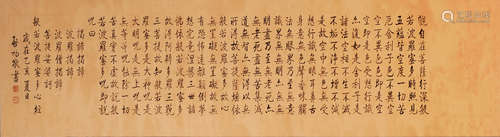 觀自在菩薩行深般
若波羅蜜多時照見
五蘊皆空度一切苦
厄舍利子色不異空
空不異色色即是空
空即是色受想行識
亦復如是舍利子是
諸法空相不生不滅
不垢不淨不增不減
是故空中無色無受
想行識無眼耳鼻舌
身意無色聲香味觸
法無眼界乃至無意
識界無無明亦無無
明盡乃至無老死亦
無老死盡無苦集滅
道無智亦無得以無
所得故菩提薩埵依
般若波羅蜜多故心
無罣礙無罣礙故無
有恐怖遠離顛倒夢
想究竟涅槃三世諸
佛依般若波羅蜜多
故得阿耨多羅三藐
三菩提故知般若波
羅蜜多是大神呪是
大明呪是無上呪是
無等等呪能除一切
苦真實不虛故說般
若波羅蜜多呪即說
呪曰
揭諦揭諦
波羅揭諦
波羅僧揭諦
菩提薩婆訶
般若波羅蜜多心經
歲在乙亥夏日
啟功敬書